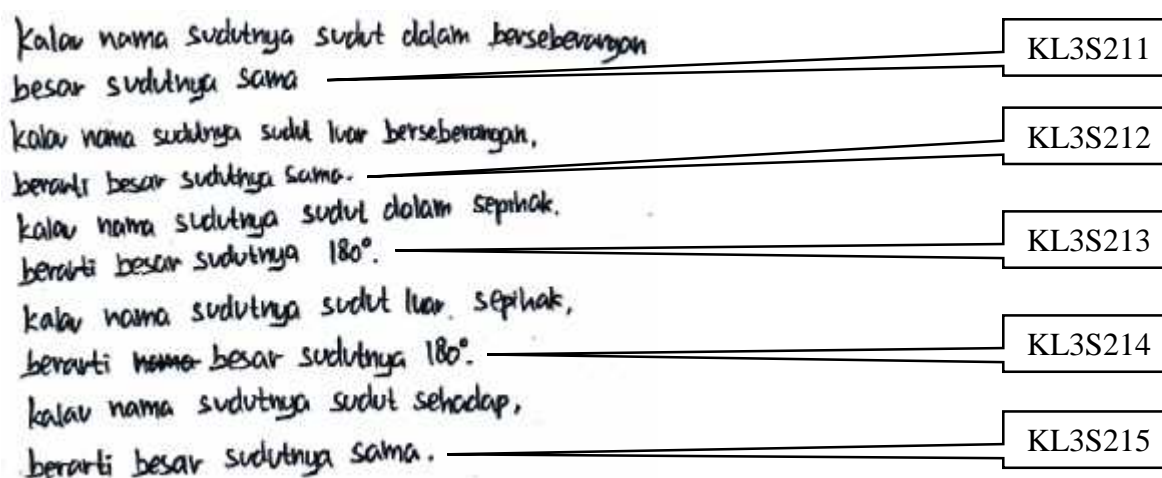 kalau nama sudutnya sudut dalam berseberangan
besar sudutnya sama
KL3S211
kalau nama sudutnya sudut luar berseberangan,
berarti besar sudutnya sama.
KL3S212
kalau nama sudutnya sudut dalam sepihak.
berarti besar sudutnya 180°.
KL3S213
kalau nama sudutnya sudut luar sepihak,
berarti nama besar sudutnya 180°.
KL3S214
kalau nama sudutnya sudut sehadap,
berarti besar sudutnya sama.
KL3S215